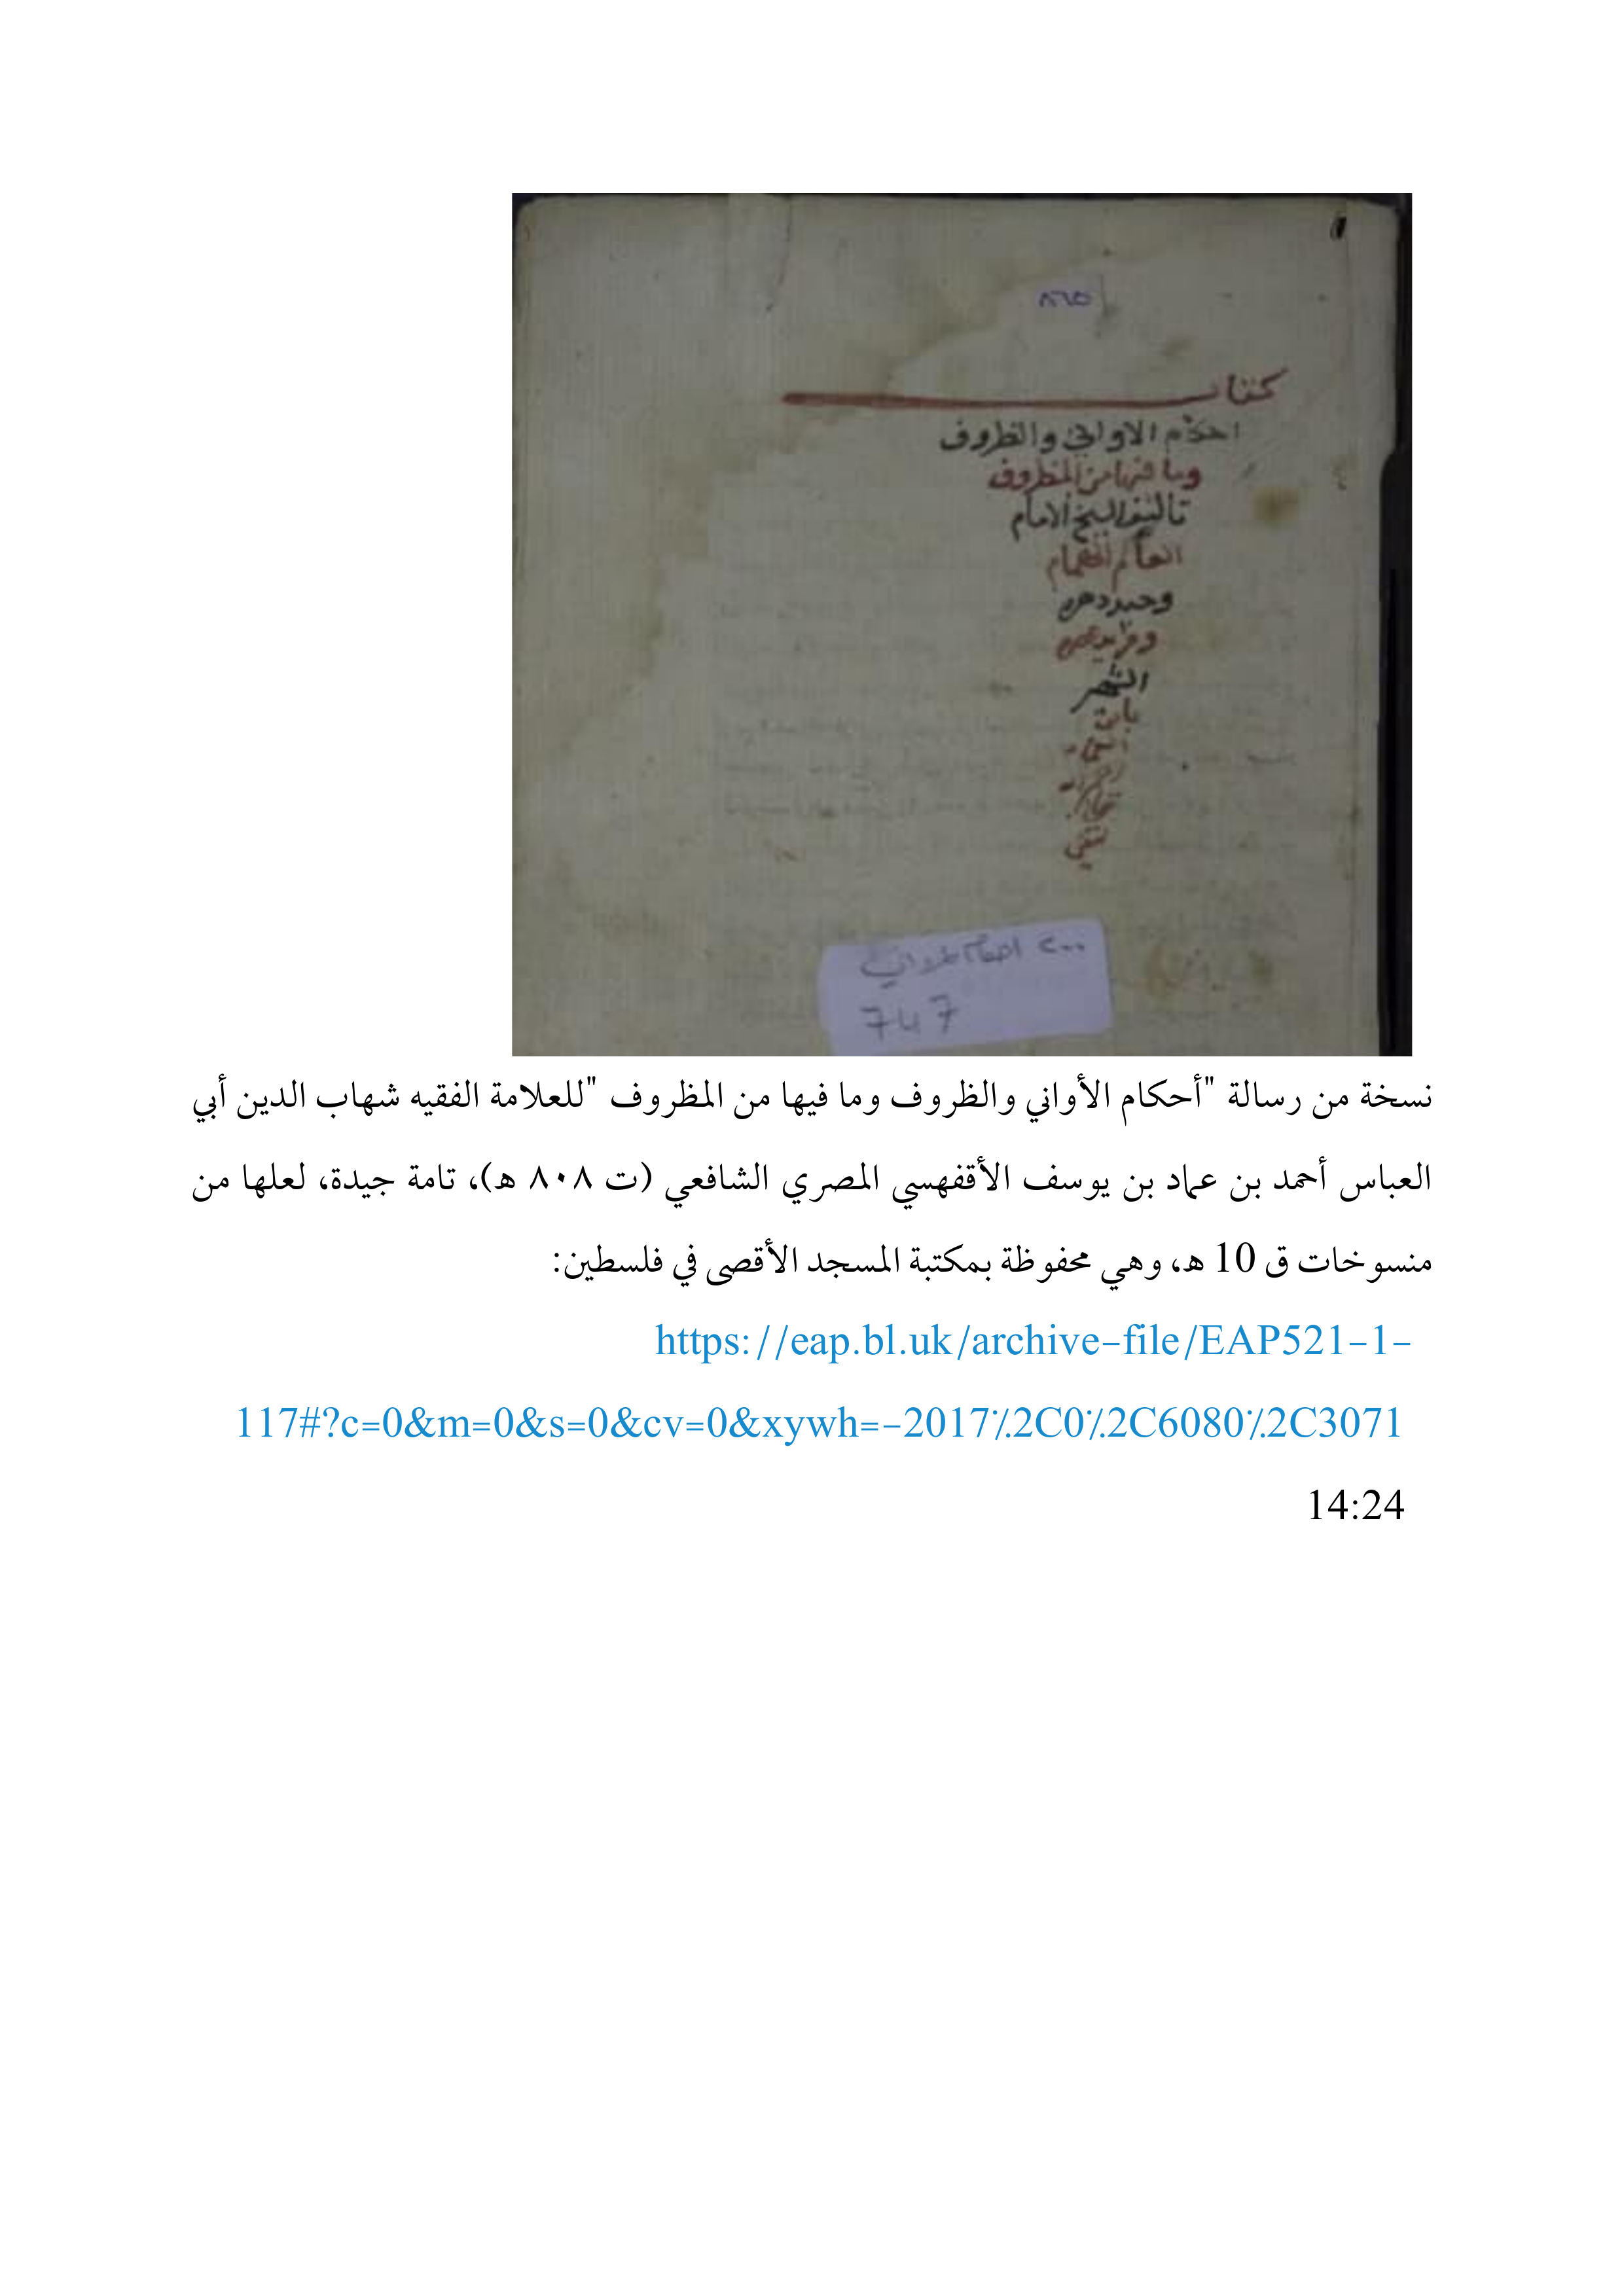 ٨٦٥
كتاب
احكام الاواني والظروف
وما فيها من المظروف
تأليف الشيخ الامام
العالم الهمام
وحيد دهره
وفريد عصره
الشهير
بابن
العماد
رحمه الله
تعالى
٢٠٠ احكام الاواني
747
نسخة من رسالة "أحكام الأواني والظروف وما فيها من المظروف "للعلامة الفقيه شهاب الدين أبي
العباس أحمد بن عماد بن يوسف الأقفهسي المصري الشافعي (ت ٨٠٨ ه)، تامة جيدة، لعلها من
منسوخات ق 10 ه، وهي محفوظة بمكتبة المسجد الأقصى في فلسطين:
https://eap.bl.uk/archive-file/EAP521-1-
117#?c=0&m=0&s=0&cv=0&xywh=-2017%2C0%2C6080%2C3071
14:24